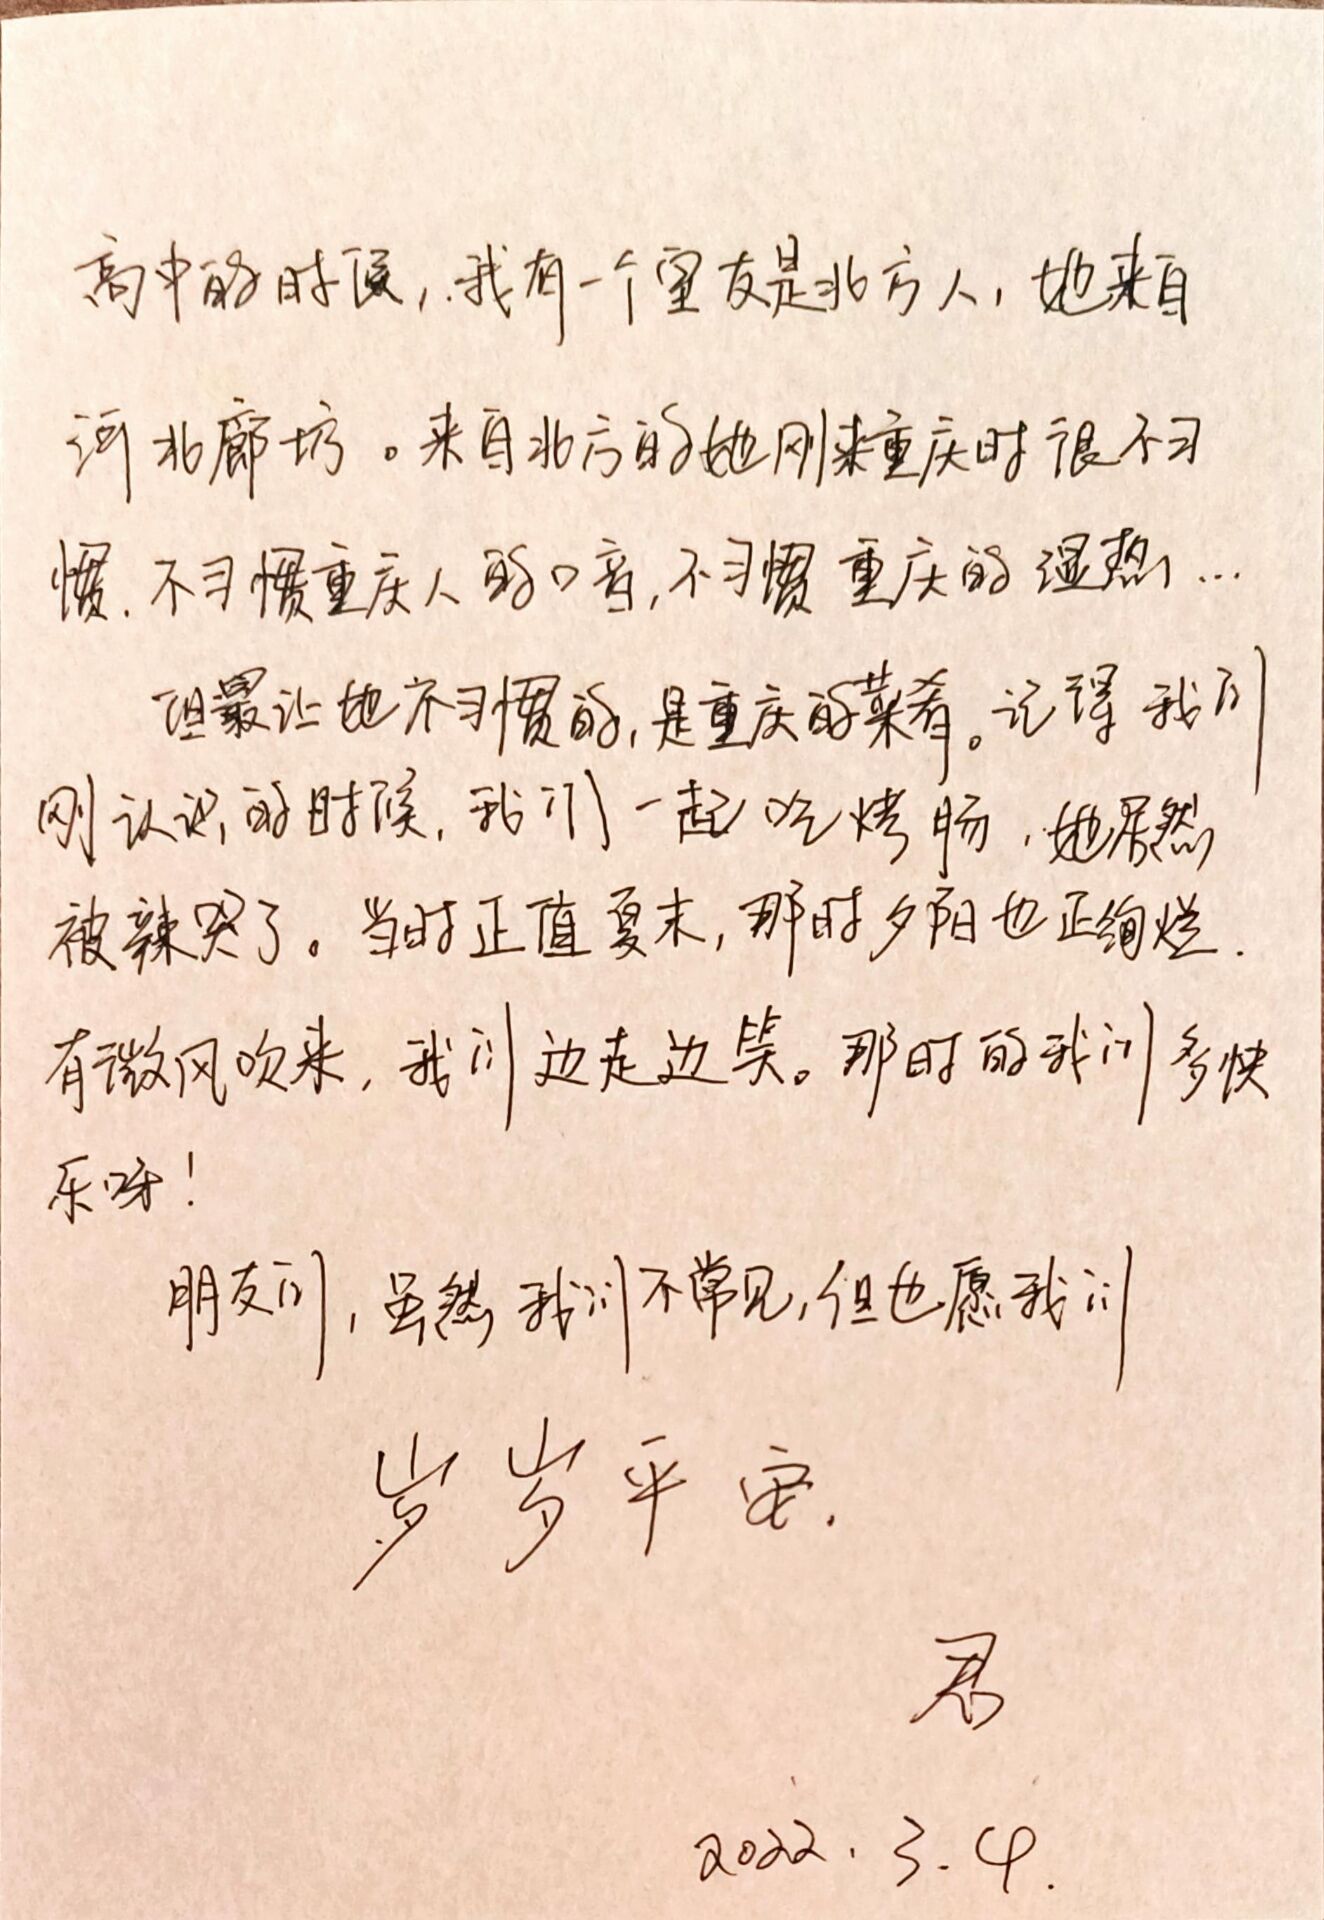 高中的时候，我有一个室友是北方人，她来自
河北廊坊。来自北方的她刚来重庆时很不习
惯.不习惯重庆人的口音,不习惯重庆的湿热...
但最让她不习惯的,是重庆的菜肴。记得我们
刚认识的时候,我们一起吃烤肠,她居然
被辣哭了。当时正值夏末,那时夕阳也正绚烂.
有微风吹来,我们边走边笑。那时的我们多快
乐呀!
朋友们,虽然我们不常见,但也愿我们
岁岁平安.
君
2022.3.4.